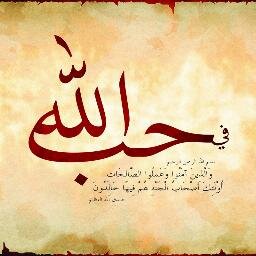 في حب الله
بسم الله الرحمن الرحيم
والَّذِينَ آمَنُوا وَعَمِلُوا الصَّالِحَاتِ
أُولَئِكَ أَصْحَابُ الْجَنَّةِ هُمْ فِيهَا خَالِدُونَ
صدق الله العظيم